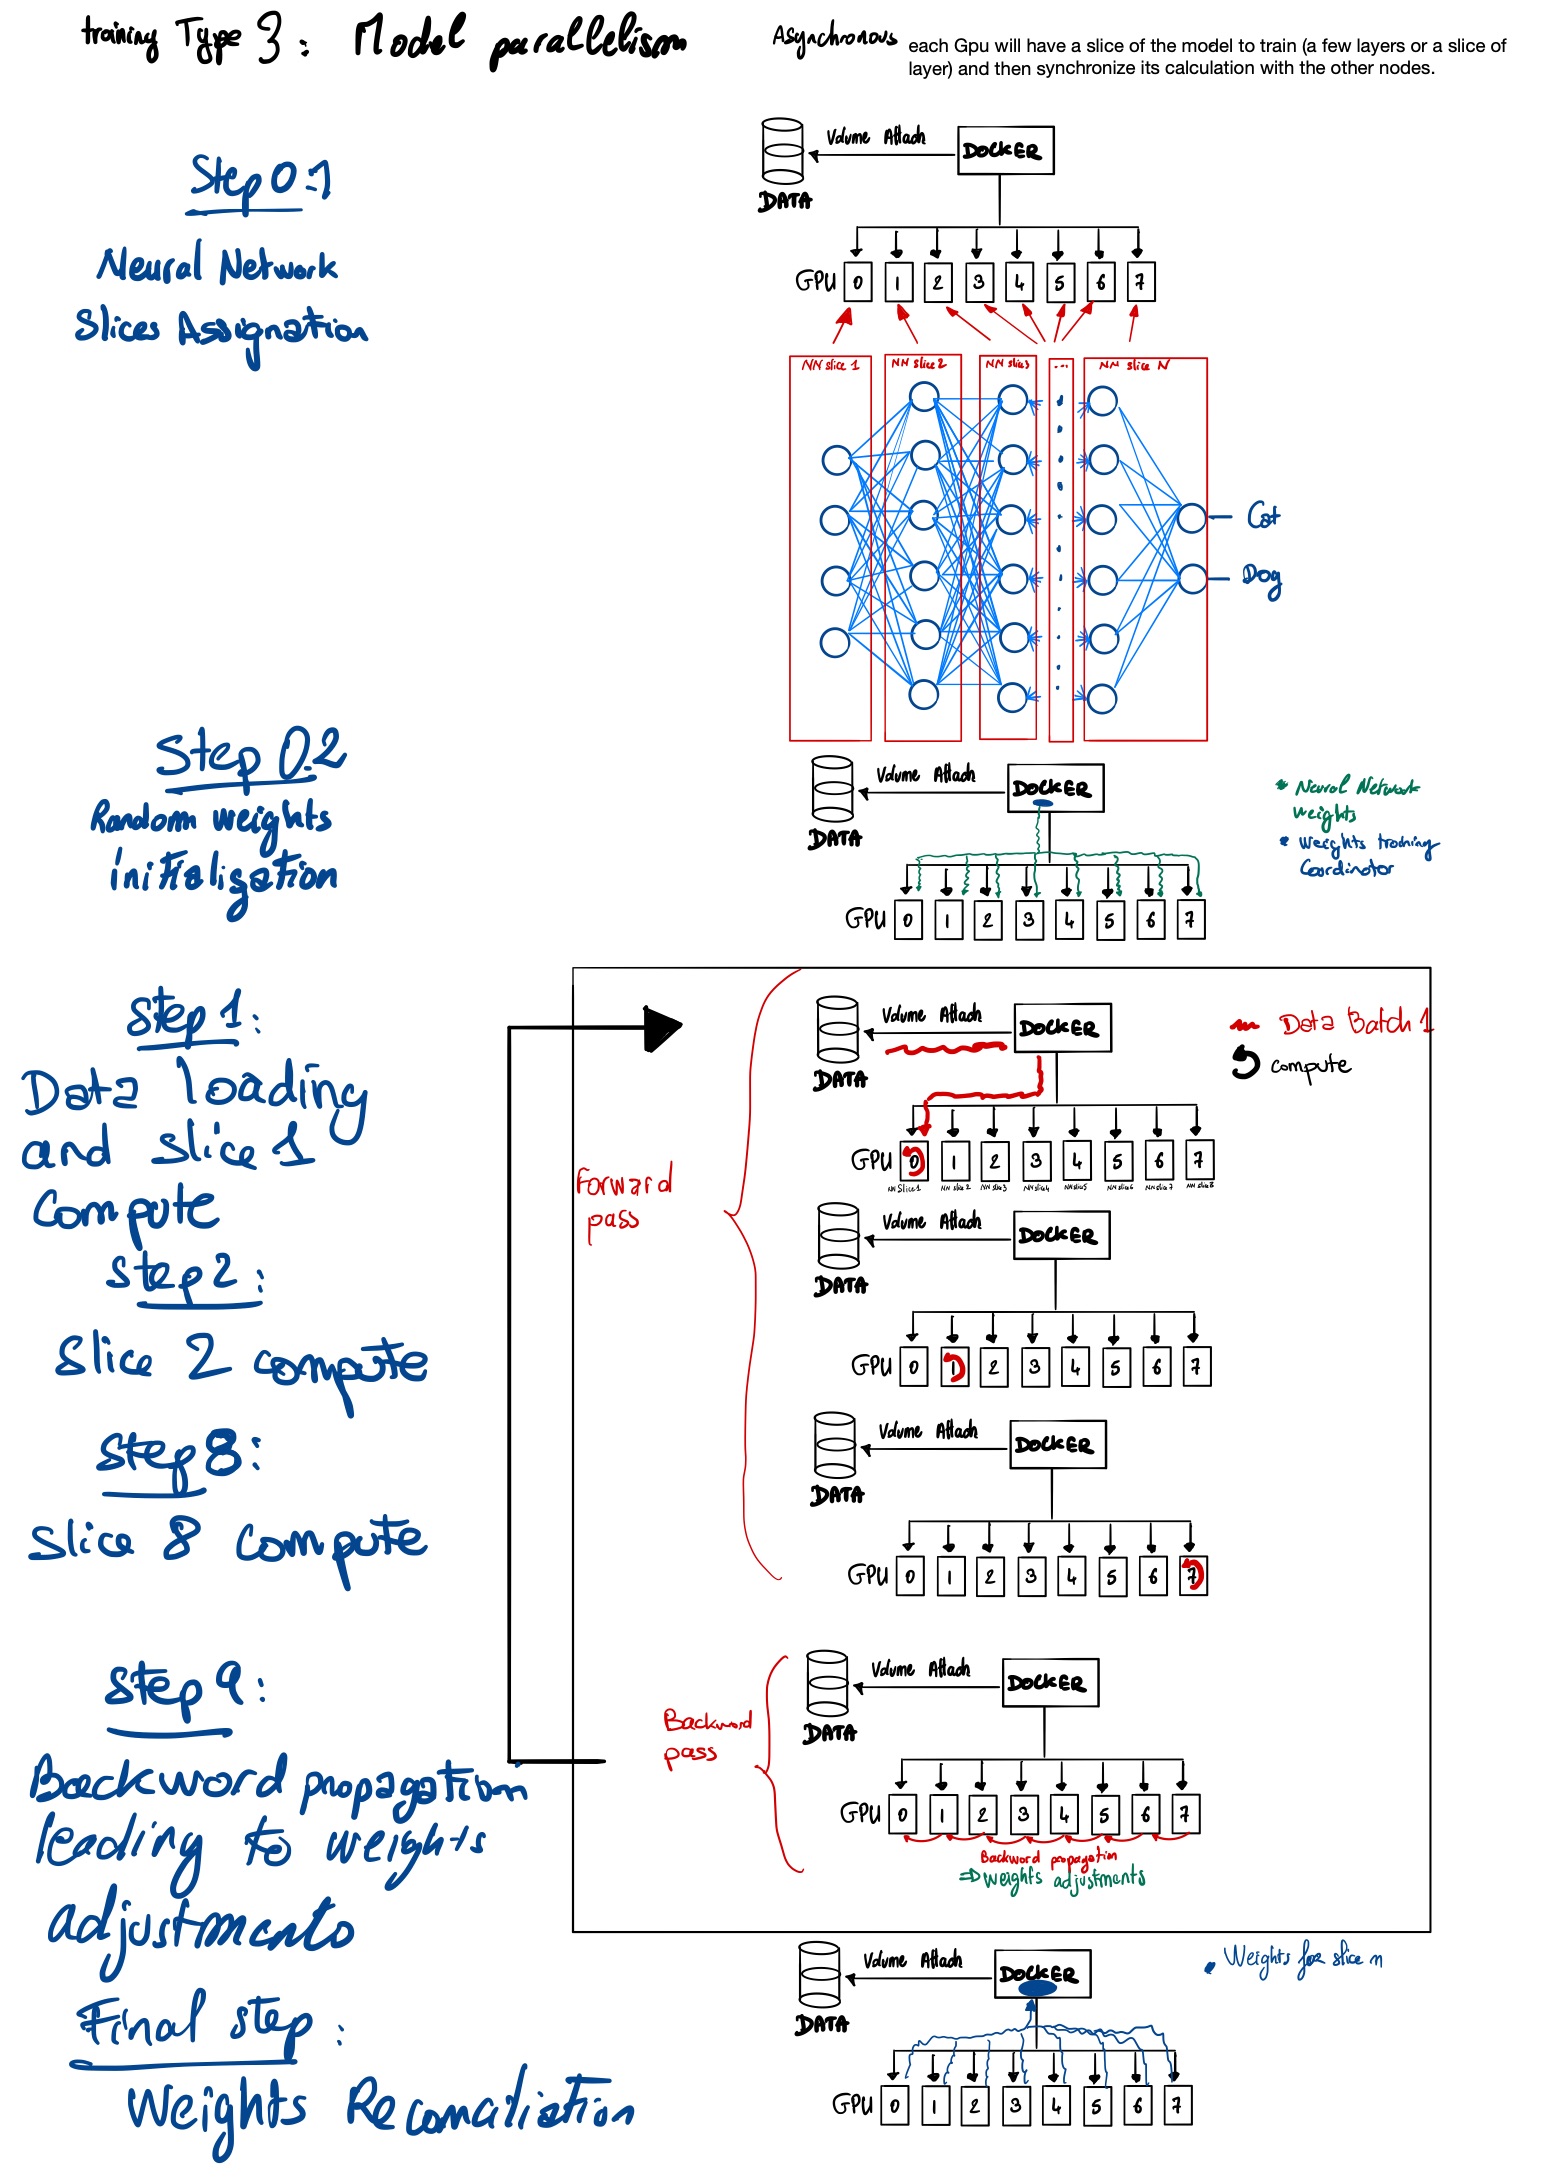 training Type 3: Model parallelism
Asynchronous
each Gpu will have a slice of the model to train (a few layers or a slice of
layer) and then synchronize its calculation with the other nodes.
Step 0.1
Neural Network
Slices Assignation
Volume Attach
DOCKER
DATA
GPU 0 1 2 3 4 5 6 7
NN slice 1 NN slice 2 NN slice 3 ... NN slice N
Cat
Dog
Step 0.2
Random weights
initialization
Volume Attach
DOCKER
DATA
GPU 0 1 2 3 4 5 6 7
Neural Network
weights
Weights training
Coordinator
Step 1:
Data loading
and slice 1
compute
Step 2:
Slice 2 compute
Step 8:
Slice 8 compute
Forward
pass
Volume Attach
DOCKER
DATA
Data Batch 1
compute
GPU 0 1 2 3 4 5 6 7
NN Slice 1 NN slice 2 NN slice 3 NN slice 4 NN slice 5 NN slice 6 NN slice 7 NN slice 8
Volume Attach
DOCKER
DATA
GPU 0 1 2 3 4 5 6 7
Volume Attach
DOCKER
DATA
GPU 0 1 2 3 4 5 6 7
Step 9:
Backword propagation
leading to weights
adjustments
Backword
pass
Volume Attach
DOCKER
DATA
GPU 0 1 2 3 4 5 6 7
Backword propagation
⇒ weights adjustments
Final step:
Weights Reconciliation
Volume Attach
DOCKER
DATA
Weights for slice n
GPU 0 1 2 3 4 5 6 7